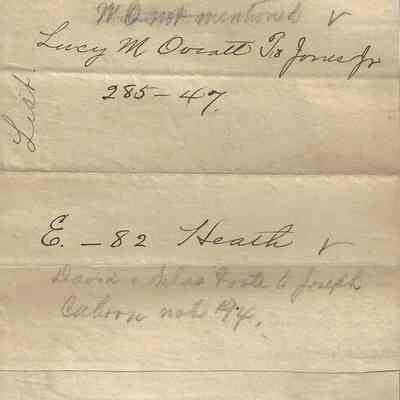 W.D not mentioned ✓
Lucy M Oviatt To Jones Jr
285-47.
List
E. - 82 Heath ✓
David & Silas Foote to Joseph
Cahoon not 194.